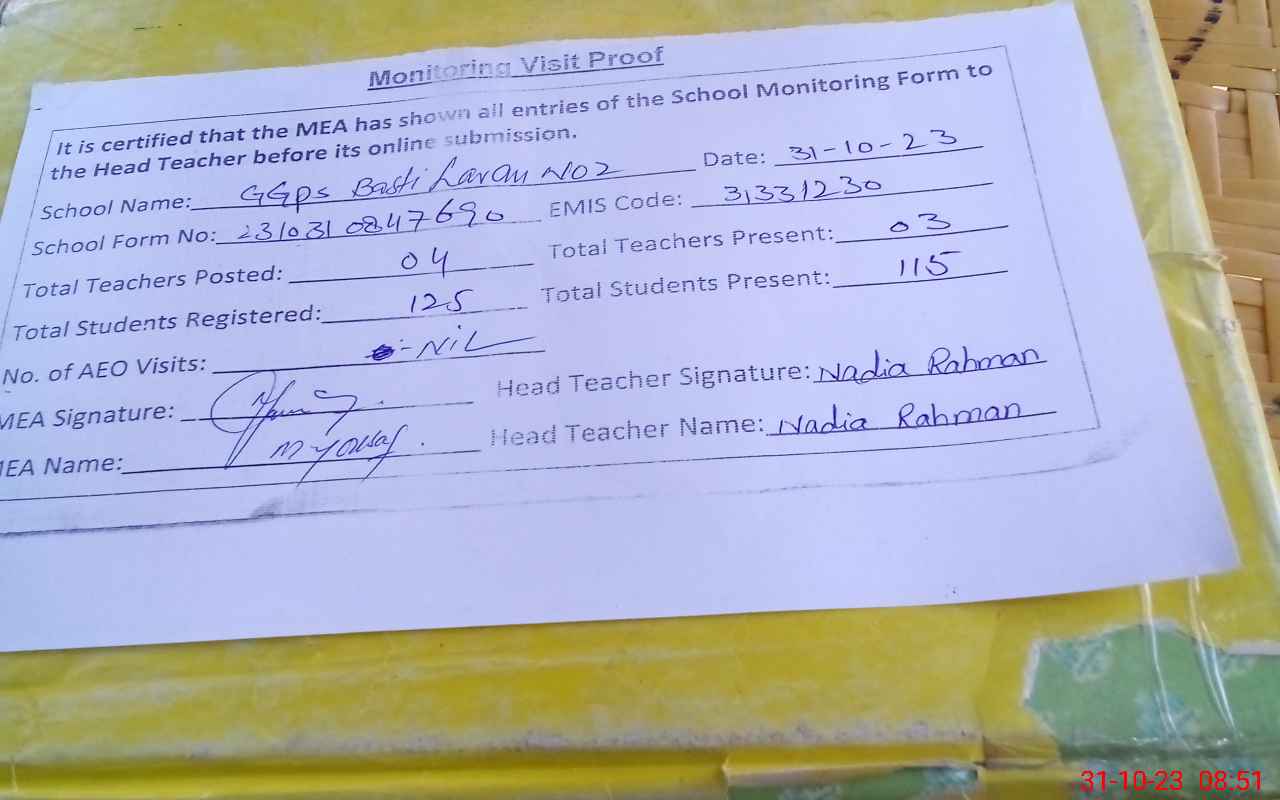 Monitoring Visit Proof
It is certified that the MEA has shown all entries of the School Monitoring Form to
the Head Teacher before its online submission.
School Name: GGps Basti Laran NO2 Date: 31-10-23
School Form No: 231031 0847690 EMIS Code: 31331230
Total Teachers Posted: 04 Total Teachers Present: 03
Total Students Registered: 125 Total Students Present: 115
No. of AEO Visits: :- NiL
MEA Signature: Head Teacher Signature: Nadia Rahman
MEA Name: M Yousaf. Head Teacher Name: Nadia Rahman
31-10-23 08:51